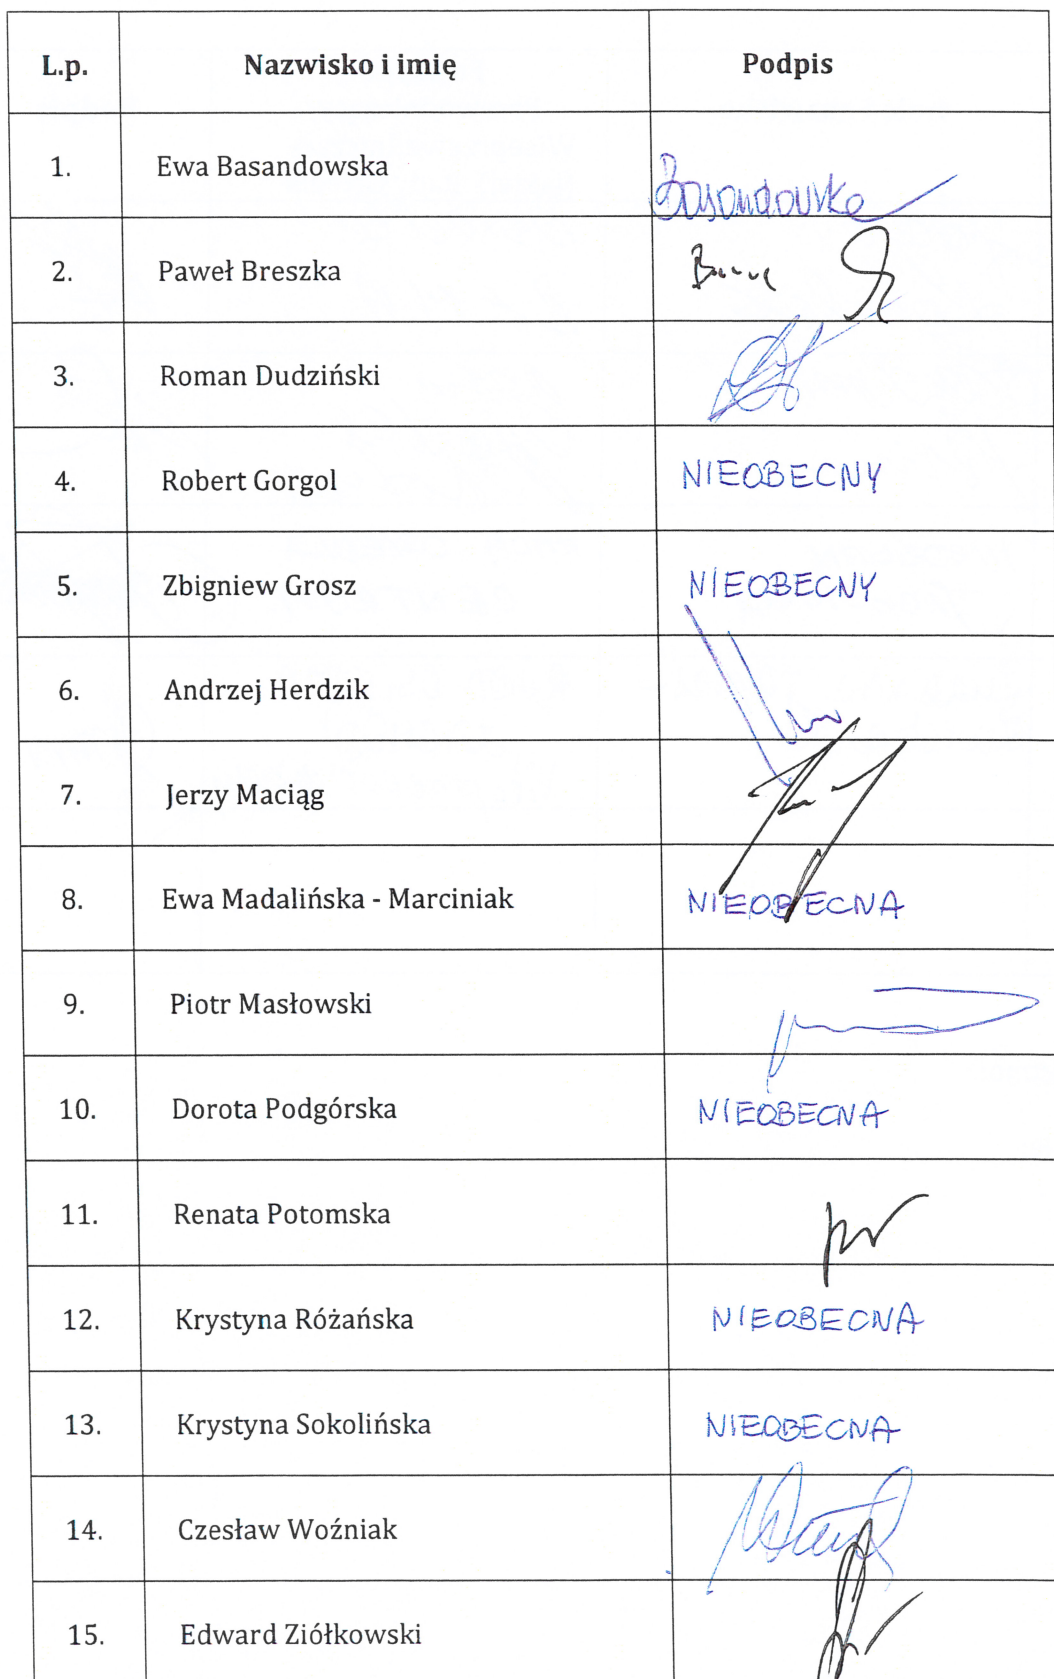 L.p. Nazwisko i imię Podpis
1. Ewa Basandowska Basandowska
2. Paweł Breszka
3. Roman Dudziński
4. Robert Gorgol NIEOBECNY
5. Zbigniew Grosz NIEOBECNY
6. Andrzej Herdzik
7. Jerzy Maciąg
8. Ewa Madalińska - Marciniak NIEOBECNA
9. Piotr Masłowski
10. Dorota Podgórska NIEOBECNA
11. Renata Potomska
12. Krystyna Różańska NIEOBECNA
13. Krystyna Sokolińska NIEOBECNA
14. Czesław Woźniak
15. Edward Ziółkowski